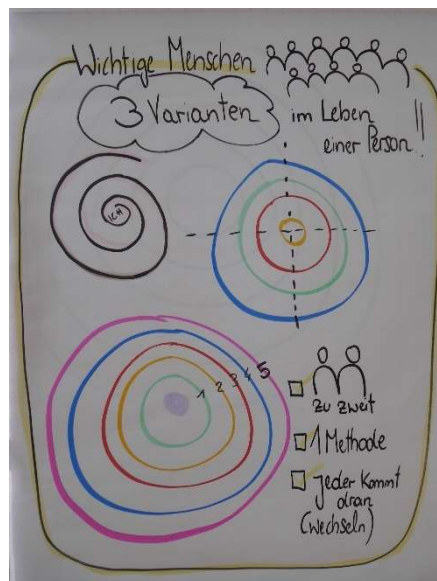 Wichtige Menschen
3 Varianten
im Leben
einer Person!!
ICH
1 2 3 4 5
zu zweit
1 Methode
jeder kommt
dran
(wechseln)